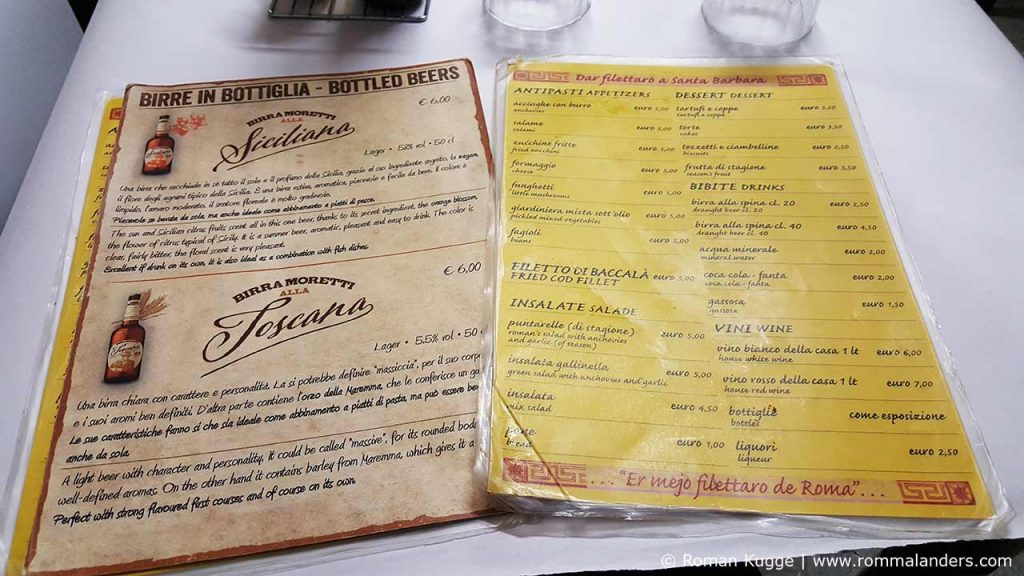 BIRRE IN BOTTIGLIA - BOTTLED BEERS
€ 6,00
BIRRA MORETTI
ALLA
Siciliana
Lager • 5.8% vol • 50 cl
Una birra che racchiude in se tutto il sole e il profumo della Sicilia, grazie al suo ingrediente segreto, la zagara,
il fiore degli agrumi tipico della Sicilia. È una birra estiva, aromatica, piacevole e facile da bere. Il colore è
limpido, l'amaro moderato, il sentore floreale è molto gradevole.
Piacevole se bevuta da sola, ma anche ideale come abbinamento a piatti di pesce.
The sun and Sicilian citrus fruits scent all in this one beer, thanks to its secret ingredient, the orange blossom,
the flower of citrus typical of Sicily. It is a summer beer, aromatic, pleasant and easy to drink. The color is
clear, fairly bitter, the floral scent is very pleasant.
Excellent if drink on its own, it is also ideal as a combination with fish dishes.
€ 6,00
BIRRA MORETTI
ALLA
Toscana
Lager • 5.5% vol • 50
Una birra chiara con carattere e personalità. La si potrebbe definire "massiccia", per il suo
e i suoi aromi ben definiti. D'altra parte contiene l'orzo della Maremma, che le conferisce un
Le sue caratteristiche fanno sì che sia ideale come abbinamento a piatti di pasta, ma può essere
anche da sola.
A light beer with character and personality. It could be called "massive", for its rounded
well-defined aromas. On the other hand it contains barley from Maremma, which gives it a
Perfect with strong flavoured first courses and of course on its own.
Dar filettaro a Santa Barbara
ANTIPASTI APPETIZERS
acciughe con burro euro 5,00
anchovies
salame euro 5,00
salami
zucchine fritte euro 5,00
fried zucchini
formaggio euro 5,00
cheese
funghetti euro 5,00
little mushrooms
giardiniera mista sott'olio euro 5,00
pickled mixed vegetables
fagioli euro 5,00
beans
FILETTO DI BACCALÀ euro 5,00
FRIED COD FILLET
INSALATE SALADE
puntarelle (di stagione) euro 5,00
roman's salad with anchovies
and garlic (of season)
insalata gallinella euro 5,00
green salad with anchovies and garlic
insalata euro 4,50
mix salad
pane euro 1,00
bread
DESSERT DESSERT
tartufi e coppe euro 3,50
tartufi e coppe
torte euro 3,50
cakes
tozzetti e ciambelline euro 0,50
biscuits
frutta di stagione euro 3,50
season's fruit
BIBITE DRINKS
birra alla spina cl. 20 euro 2,50
draught beer cl. 20
birra alla spina cl. 40 euro 4,50
draught beer cl. 40
acqua minerale euro 2,00
mineral water
coca cola - fanta euro 2,00
coca cola - fanta
gassosa euro 1,50
gassosa
VINI WINE
vino bianco della casa 1 lt euro 6,00
house white wine
vino rosso della casa 1 lt euro 7,00
house red wine
bottiglie come esposizione
bottles
liquori euro 2,50
liqueur
... "Er mejo filettaro de Roma"...
© Roman Kugge | www.rommalanders.com